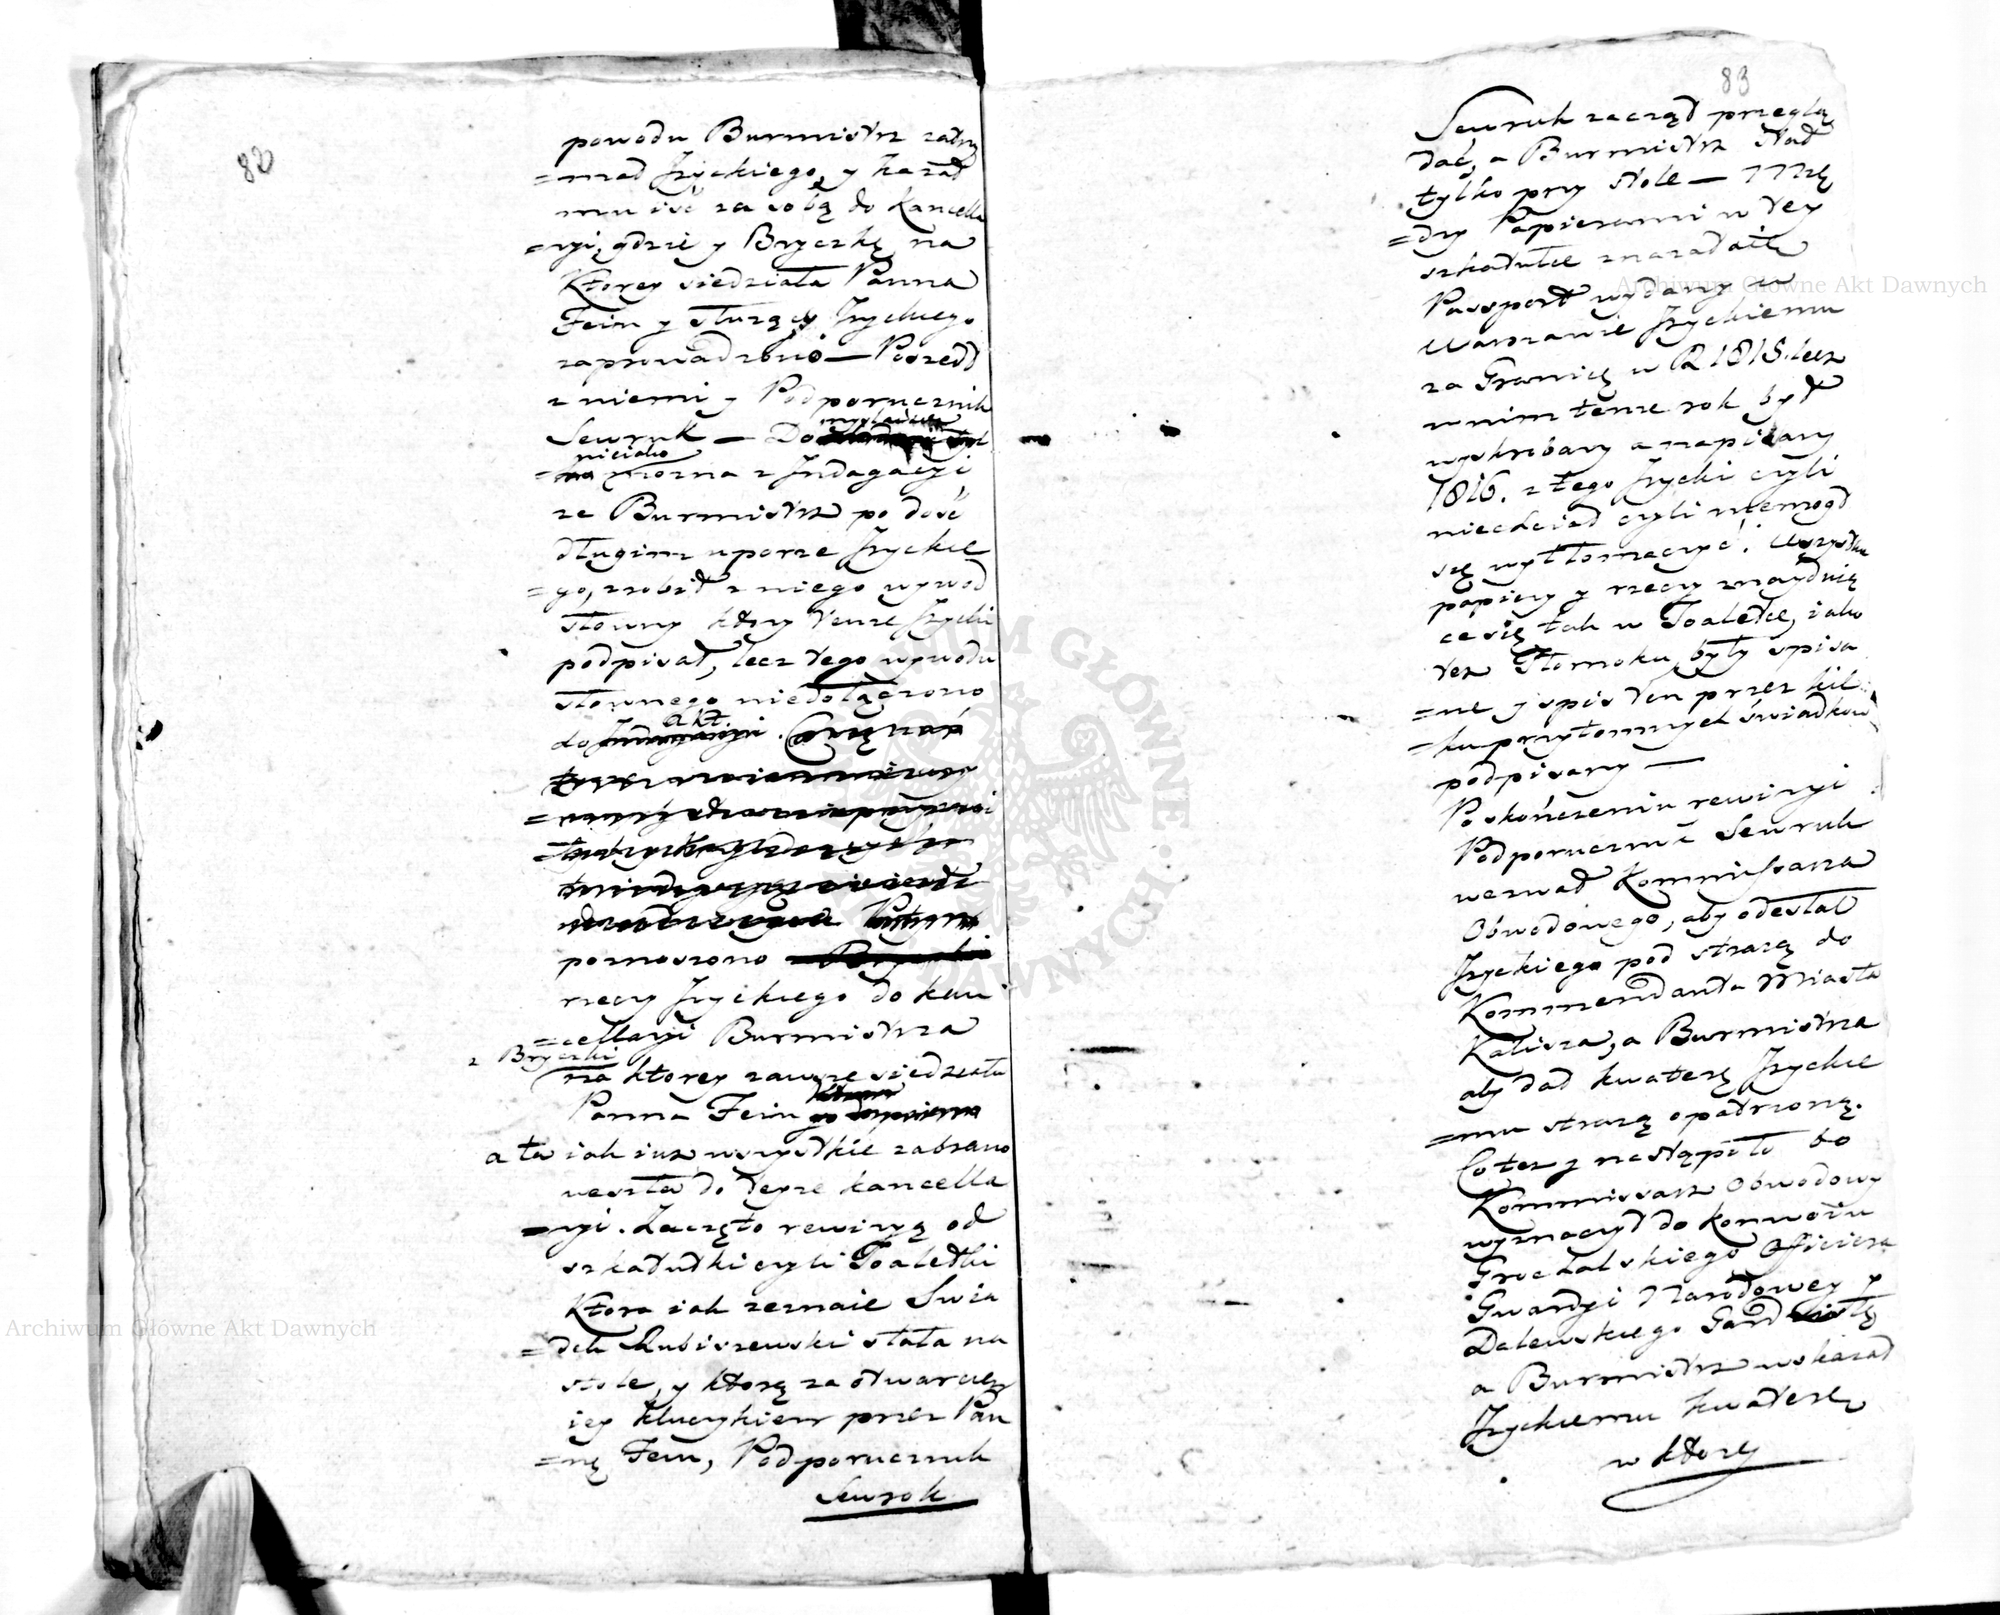 82
powodu Burmistrz zatrzy
=mał Jżyckiego, y kazał
mu iść za sobą do Kancella
=ryi, gdzie y Bryczkę na
Ktorey siedziała Panna
Fein y służący Jżyckiego
zaprowadzono — Poszedł
z niemi y Podporucznik
Sewruk — Do
nieiako
można z Jndagacyi
że Burmistrz po dość
długim uporze Jżyckie
=go, zrobił z niego wywod
słowny ktory tenże Jżycki
podpisał, lecz tego wywodu
słownego niedołączono
akt.
do
poznoszono
rzeczy Jżyckiego do kan
=cellaryi Burmistrza
z Bryczki
na ktorey zawsze siedziała
Panna Fein
a ta iak iuz wszystkie zabrano
weszła do teyże kancella
=ryi. Zaczęto rewizyą od
szkatułki czyli Toaletki
Ktora iak zeznaie Swia
=dek Lubiszewski stała na
stole, y ktorą za otwarciem
iey kluczykiem przez Pan
=nę Fein, Podporucznik
Sewrok
83
Sewruk zaczął przeglą
dać, a Burmistrz stał
tylko przy stole — Mię
=dzy Papierami w tey
szkatułce znalazł się
Passport wydany w
Warszawie Jżyckiemu
za Granicę w R 1815. lecz
w nim tenże rok był
wyskrobany a napisany
1816. z tego Jżycki czyli
niechciał czyli niemogł
się wytłomaczyć. Wszystkie
papiery y rzeczy znayduią
ce się tak w Toaletce, iako
tez Tłomoku, były spisa
=ne y spis ten przez kil
=ku przytomnych świadkow
podpisany —
Po skończeniu rewizyi
Podporucznik Sewruk
wezwał Kommissarza
Obwodowego, aby odesłał
Jżyckiego pod strażą do
Kommendanta Miasta
Kalisza, a Burmistrza
aby dał kwaterę Jżyckie
=mu strażą opatrzoną.
Co tez y nastąpiło bo
Kommissarz Obwodowy
wyznaczył do konwoiu
Grochalskiego Officiera
Gwardyi Narodowey y
Dalewskiego
a Burmistrz wskazał
Jżyckiemu kwaterę
w ktorey
Archiwum Główne Akt Dawnych
Archiwum Główne Akt Dawnych